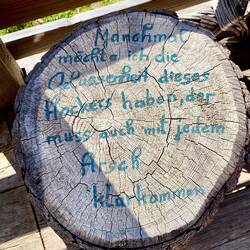 Manchmal
möchte ich die
Gelassenheit dieses
Hockers haben, der
muss auch mit jedem
Arsch
klarkommen